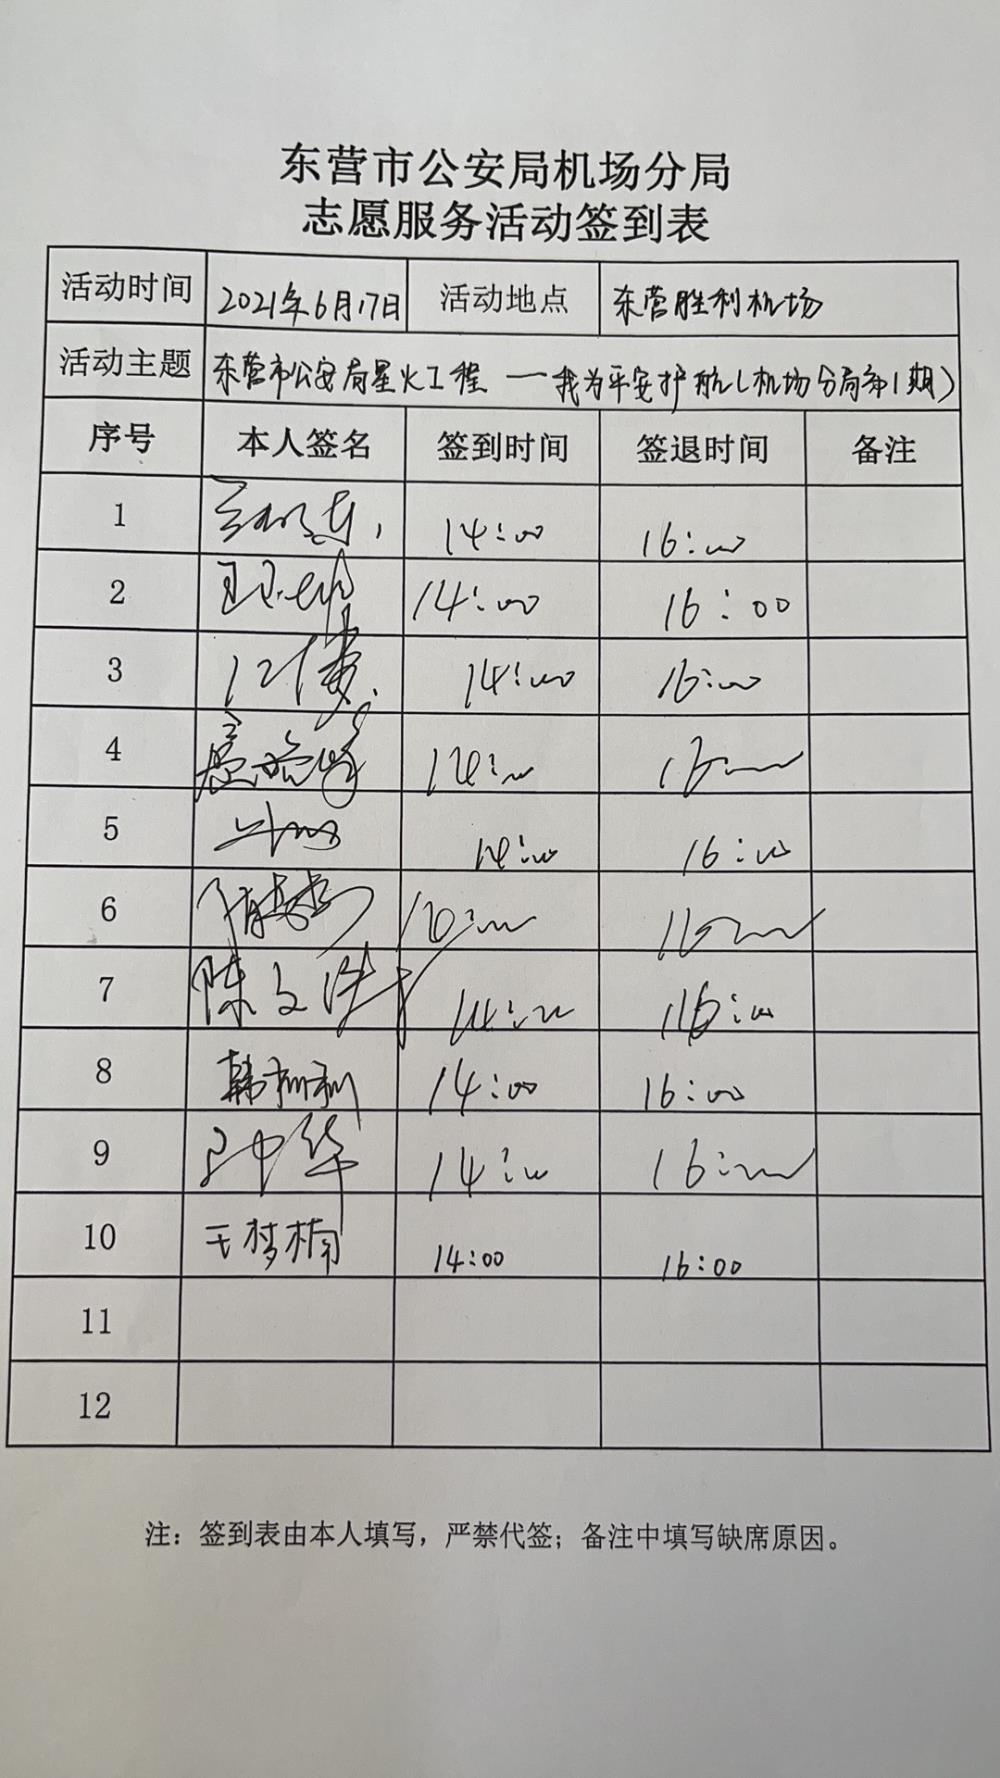 东营市公安局机场分局
志愿服务活动签到表
活动时间 2021年6月17日 活动地点 东营胜利机场
活动主题 东营市公安局星火工程 — 我为平安护航(机场分局第1期)
序号 本人签名 签到时间 签退时间 备注
1 14:00 16:00
2 14:00 16:00
3 14:00 16:00
4 14:00 16:00
5 14:00 16:00
6 16:00
7 陈文洪 14:00 16:00
8 韩利利 14:00 16:00
9 14:00 16:00
10 王梦楠 14:00 16:00
11
12
注：签到表由本人填写，严禁代签；备注中填写缺席原因。